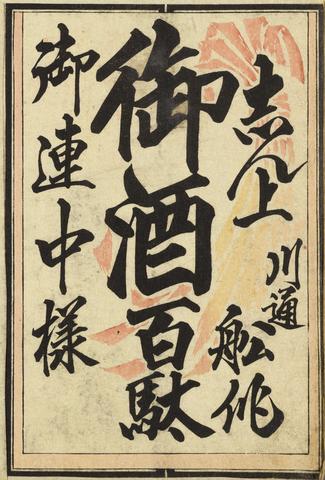 志ん上
川通
舩作
御酒百駄
御連中様